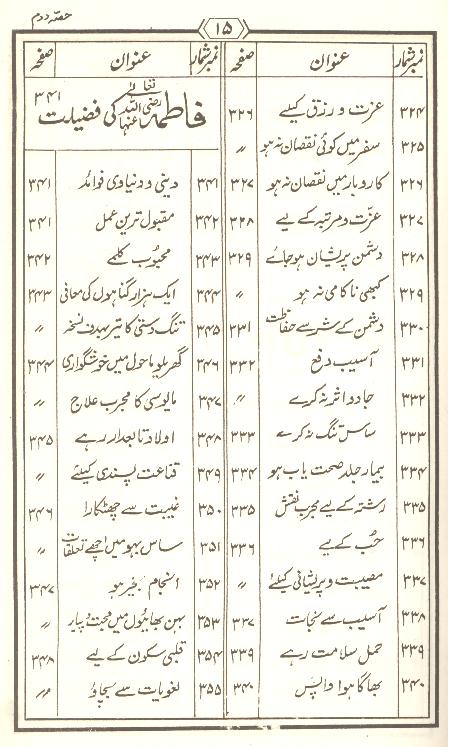 حصّہ دوم
۱۵
نمبرشمار عنوان صفحہ
۳۲۴ عزت و رزق کیلئے ۳۲۶
۳۲۵ سفر میں کوئی نقصان نہ ہو 〃
۳۲۶ کاروبار میں نقصان نہ ہو ۳۲۷
۳۲۷ عزّت و مرتبہ کے لیے ۳۲۸
۳۲۸ دشمن پریشان ہو جائے ۳۲۹
۳۲۹ کبھی ناکامی نہ ہو 〃
۳۳۰ دشمن کے شر سے حفاظت ۳۳۱
۳۳۱ آسیب دفع ۳۳۲
۳۳۲ جادو اثر نہ کرے 〃
۳۳۳ ساس تنگ نہ کرے ۳۳۳
۳۳۴ بیمار جلد صحت یاب ہو ۳۳۴
۳۳۵ رشتہ کے لیے مجرب نقش ۳۳۵
۳۳۶ حُب کے لیے ۳۳۶
۳۳۷ مصیبت و پریشانی کیلئے 〃
۳۳۸ آسیب سے نجات ۳۳۷
۳۳۹ حمل سلامت رہے ۳۳۹
۳۴۰ بھاگا ہوا واپس ۳۴۰
نمبرشمار عنوان صفحہ
فاطمہ رضی اللہ تعالیٰ عنہا کی فضیلت ۳۴۱
۳۴۱ دینی و دنیاوی فوائد ۳۴۱
۳۴۲ مقبول ترین عمل ۳۴۱
۳۴۳ محبُوب کلمے ۳۴۲
۳۴۴ ایک ہزار گناہوں کی معافی ۳۴۳
۳۴۵ تنگ دستی کا تیر بہدف نسخہ 〃
۳۴۶ گھریلو ماحول میں خوشگواری ۳۴۴
۳۴۷ مایوسی کا مجرب علاج 〃
۳۴۸ اولاد تابعدار رہے ۳۴۵
۳۴۹ قناعت پسندی کیلئے 〃
۳۵۰ غیبت سے چھٹکارا ۳۴۶
۳۵۱ ساس بہو میں اچھے تعلقات 〃
۳۵۲ انجام بخیر ہو ۳۴۷
۳۵۳ بہن بھائیوں میں محبت و پیار 〃
۳۵۴ قلبی سکون کے لیے ۳۴۸
۳۵۵ لغویات سے بچاؤ 〃